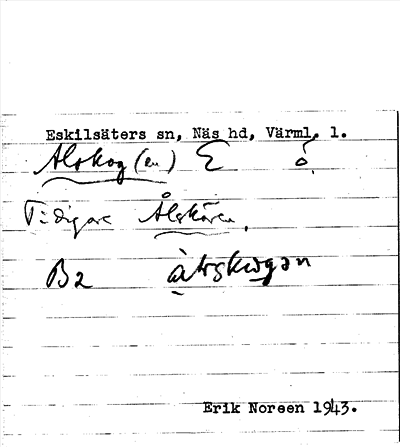 Eskilsäters sn, Näs hd, Värml. l.
Alskog (en) E ó
Tidigare Ålskären.
B2 àlskogən
Erik Noreen 1943.